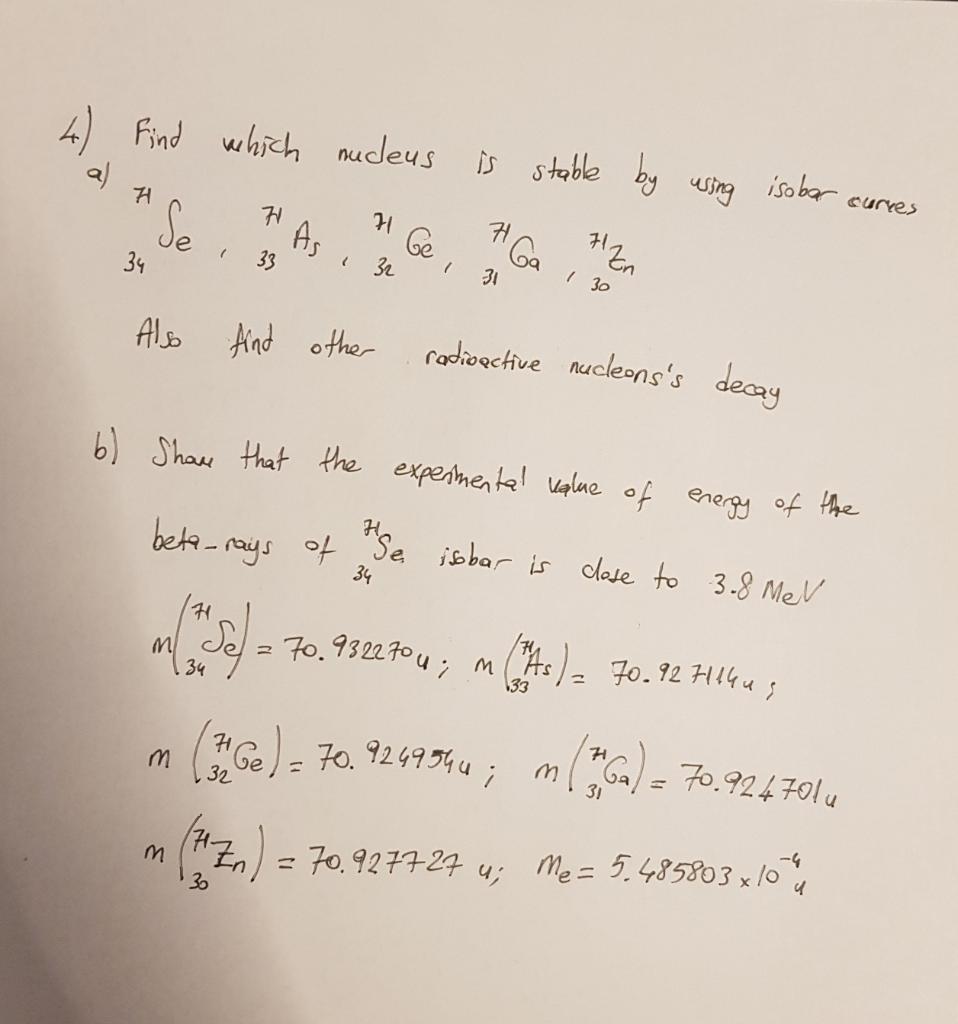 4) Find which nucleus is stable by using isobar curves
a) ⁷¹₃₄Se , ⁷¹₃₃As , ⁷¹₃₂Ge , ⁷¹₃₁Ga , ⁷¹₃₀Zn
Also find other radioactive nucleons's decay
b) Show that the experimental value of energy of the
beta-rays of ⁷¹₃₄Se isobar is close to 3.8 MeV
m(⁷¹₃₄Se) = 70.932270u ; m(⁷¹₃₃As) = 70.927114u ;
m(⁷¹₃₂Ge) = 70.924954u ; m(⁷¹₃₁Ga) = 70.924701u
m(⁷¹₃₀Zn) = 70.927727 u; Me = 5.485803 x 10⁻⁴ u